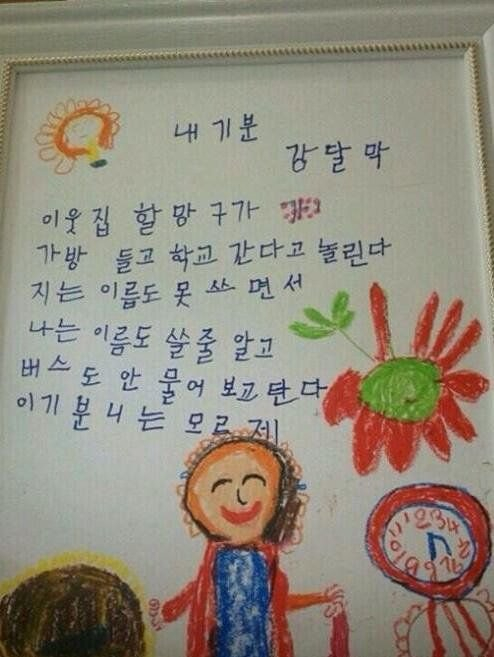 내 기분
강달막
이웃집 할망구가
가방 들고 학교 간다고 놀린다
지는 이름도 못 쓰면서
나는 이름도 쓸줄 알고
버스도 안 물어 보고 탄다
이기분 니는 모르제
12345678910 11